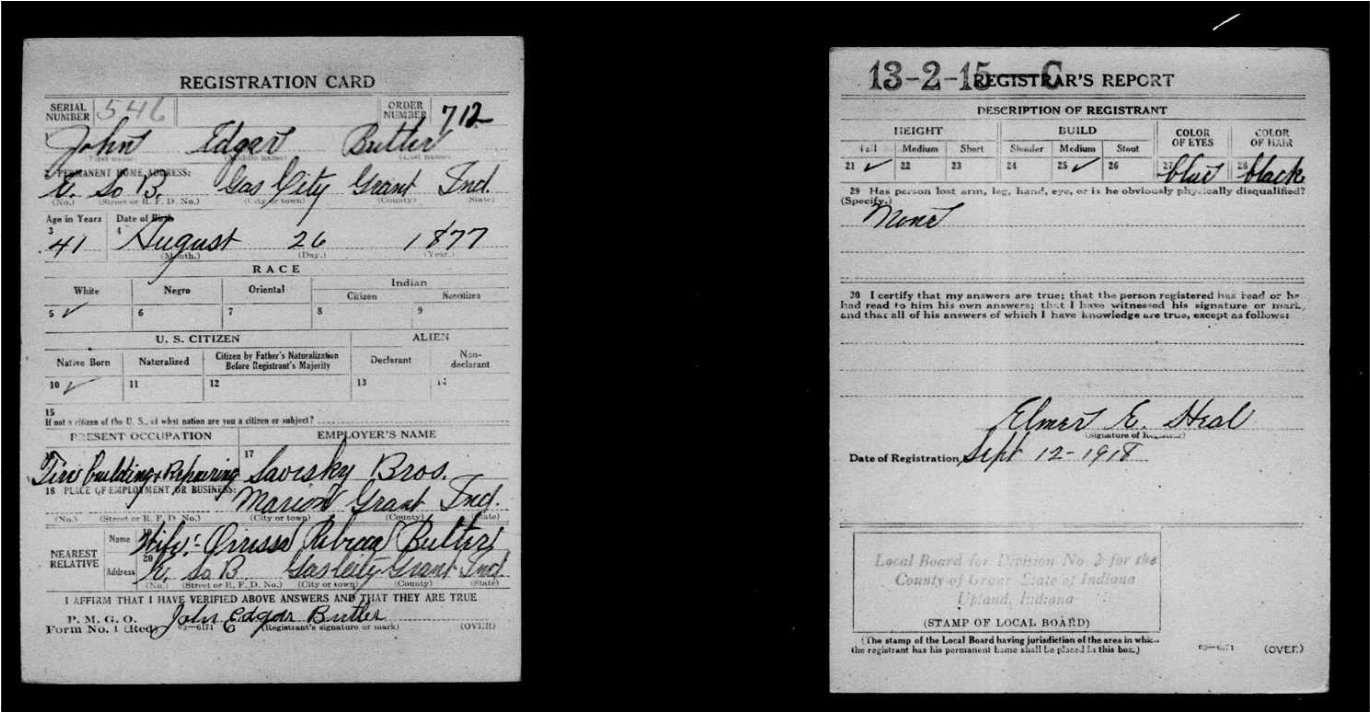 REGISTRATION CARD
SERIAL NUMBER 546 ORDER NUMBER 712
1 John Edgar Butler
(First name) (Middle name) (Last name)
2 PERMANENT HOME ADDRESS:
E. So B. Gas City Grant Ind.
(No.) (Street or R. F. D. No.) (City or town) (County) (State)
Age in Years Date of Birth
3 41 4 August 26 1877
(Month.) (Day.) (Year.)
RACE
White Negro Oriental Indian
Citizen Noncitizen
5 ✓ 6 7 8 9
U. S. CITIZEN ALIEN
Native Born Naturalized Citizen by Father's Naturalization Before Registrant's Majority Declarant Non-declarant
10 ✓ 11 12 13 14
15
If not a citizen of the U. S., of what nation are you a citizen or subject?
PRESENT OCCUPATION EMPLOYER'S NAME
Tire building & Repairing 17 Savisky Bros.
18 PLACE OF EMPLOYMENT OR BUSINESS:
Marion Grant Ind.
(No.) (Street or R. F. D. No.) (City or town) (County) (State)
NEAREST RELATIVE Name 19 Wife: Orissa Rebecca Butler
Address 20 E. So. B. Gas City Grant Ind
(No.) (Street or R. F. D. No.) (City or town) (County) (State)
I AFFIRM THAT I HAVE VERIFIED ABOVE ANSWERS AND THAT THEY ARE TRUE
P. M. G. O.
Form No. 1 (Red) 03—6171 John Edgar Butler (Registrant's signature or mark) (OVER)
13-2-15 C REGISTRAR'S REPORT
DESCRIPTION OF REGISTRANT
HEIGHT BUILD COLOR OF EYES COLOR OF HAIR
Tall Medium Short Slender Medium Stout
21 ✓ 22 23 24 25 ✓ 26 27 blue 28 black
29 Has person lost arm, leg, hand, eye, or is he obviously physically disqualified?
(Specify.)
None
30 I certify that my answers are true; that the person registered has read or has
had read to him his own answers; that I have witnessed his signature or mark,
and that all of his answers of which I have knowledge are true, except as follows:
Elmer E. Heal
(Signature of Registrar)
Date of Registration Sept 12-1918
Local Board for Division No. 2 for the
County of Grant State of Indiana
Upland, Indiana
(STAMP OF LOCAL BOARD)
(The stamp of the Local Board having jurisdiction of the area in which
the registrant has his permanent home shall be placed in this box.)
03—6171 (OVER)